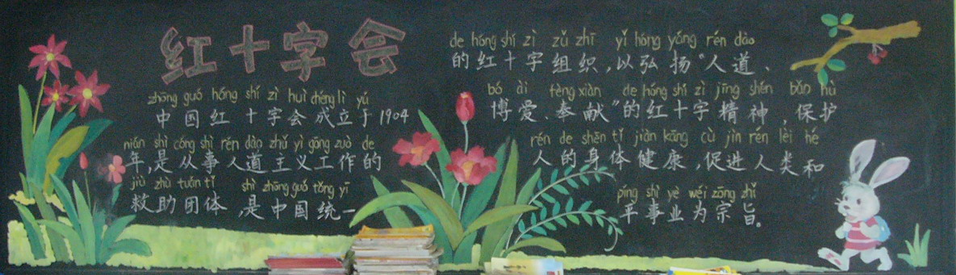 红十字会
zhōng guó hóng shí zì huì chéng lì yú
中国红十字会成立于1904
nián shì cóng shì rén dào zhǔ yì gōng zuò de
年,是从事人道主义工作的
jiù zhù tuán tǐ shì zhōng guó tǒng yī
救助团体,是中国统一
de hóng shí zì zǔ zhī yǐ hóng yáng rén dào
的红十字组织,以弘扬“人道、
bó ài fèng xiàn de hóng shí zì jīng shén bǎo hù
博爱、奉献”的红十字精神,保护
rén de shēn tǐ jiàn kāng cù jìn rén lèi hé
人的身体健康,促进人类和
píng shì yè wéi zōng zhǐ
平事业为宗旨。